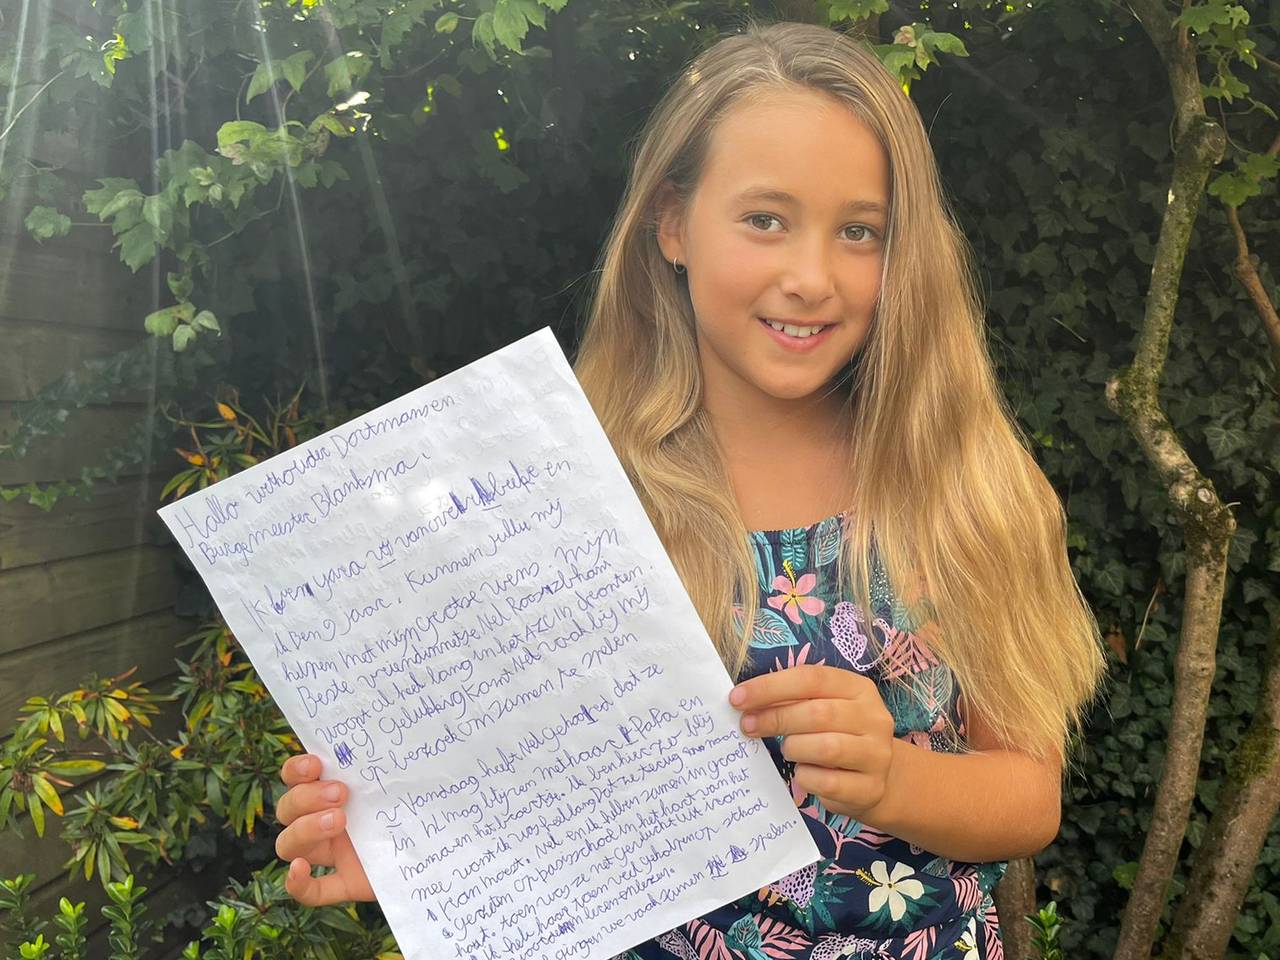 Hallo wethouder Dortmans en
Burgemeester Blanksma,
Ik ben yara van overbeeke en
ik Ben 9 jaar. Kunnen jullie mij
helpen met mijn grootse wens mijn
Beste vriendinnetje Nel
woont al heel lang in het AZC in dronten.
gelukkig komt Nel vaak bij mij
op bezoek om samen te spelen
Vandaag heeft Nel gehoord dat ze
in NL mag blijven met haar PaPa en
mama en het broertje. ik ben hier zo blij
mee want ik was heel bang Dat ze terug
kan moest. Nel en ik hebben samen in groep 3
gezeten op basisschool in het hart van het
hout. toen was ze net gevlucht uit iran.
Ik heb haar toen veel geholpen op school
woorden leren en lezen.
gingen we vaak samen spelen.